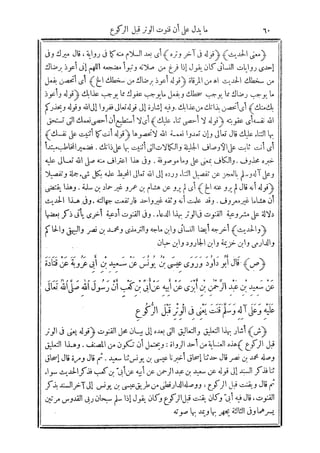 ٦٠ ما يدل على أن قنوت الوتر قبل الركوع
﴿معنى الحديث﴾ ﴿قوله فى آخر وتره﴾ أى بعد السلام منه كما فى رواية. قال ميرك وفى
إحدى روايات النسائى كان يقول إذا فرغ من صلاته وتبوأ مضجعه اللهم إنى أعوذ برضاك
من سخطك الحديث اهـ من المرقاة ﴿قوله أعوذ برضاك من سخطك الخ﴾ أى أتحصن بفعل
ما يوجب رضاك مما يوجب سخطك وبفعل ما يوجب عفوك مما يوجب عذابك ﴿قوله وأعوذ
بك منك﴾ أى أتحصن بذاتك من عذابك. وفيه إشارة إلى قوله تعالى ففروا إلى الله وقوله ويحذركم
الله نفسه أى عقوبته ﴿قوله لا أحصى ثناء عليك﴾ أى لا أستطيع أن أحصى نعمك التى تستحق
بها الثناء عليك قال تعالى وإن تعدوا نعمة الله لا تحصوها ﴿قوله أنت كما أثنيت على نفسك﴾
أى أنت ثابت على الأوصاف الجليلة والكمالات التى أثنيت بها على ذاتك. فضمير المخاطب مبتدأ
خبره محذوف. والكاف بمعنى على وما موصوفة. وفى هذا اعتراف منه صلى الله تعالى عليه
وعلى آله وسلم بالعجز عن تفصيل الثناء ورده إلى الله تعالى المحيط علمه بكل شىء جملة وتفصيلا
﴿قوله أنه قال لم يرو عنه الخ﴾ أى لم يرو عن هشام بن عمرو غير حماد بن سلمة. وهذا يقتضى
أن هشاما غير معروف. وقد علمت أنه وثقه غير واحد فارتفعت جهالته. وفى هذا الحديث
دلالة على مشروعية القنوت فى الوتر بهذا الدعاء. وفى القنوت أدعية أخرى يأتى ذكر بعضها
﴿والحديث﴾ أخرجه أيضا النسائى وابن ماجه والترمذى ومحمد بن نصر والبيهقى والحاكم
والدارمى وابن خزيمة وابن الجارود وابن حبان
﴿ص﴾ قَالَ أَبُو دَاوُدَ وَرَوَى عِيسَى بْنُ يُونُسَ عَنْ سَعِيدِ بْنِ أَبِى عَرُوبَةَ عَنْ قَتَادَةَ
عَنْ سَعِيدِ بْنِ عَبْدِ الرَّحْمَنِ بْنِ أَبْزَى عَنْ أَبِيهِ عَنْ أُبَىِّ بْنِ كَعْبٍ أَنَّ رَسُولَ اللهِ صَلَّى اللهُ تَعَالَى
عَلَيْهِ وَعَلَى آلِهِ وَسَلَّمَ قَنَتَ يَعْنِى فِى الْوِتْرِ قَبْلَ الرُّكُوعِ
﴿ش﴾ أشار بهذا التعليق والتعاليق التى بعده إلى بيان محل القنوت ﴿قوله يعنى فى الوتر
قبل الركوع﴾ هذه العناية من أحد الرواة. ويحتمل أن تكون من المصنف. وهذا التعليق
وصله محمد بن نصر قال حدثنا إسحاق أخبرنا عيسى بن يونس ثنا سعيد. ثم قال ومرة قال إسحاق
ثنا فذكر السند إلى قوله عن سعيد بن عبد الرحمن عن أبيه عن أبى بن كعب فذكر الحديث سواء.
ثم قال ويقنت قبل الركوع. ووصله الدارقطنى من طريق عيسى بن يونس إلى آخر السند بذكر
القنوت. قال فيه أبى وكان يقنت قبل الركوع وكان يقول إذا سلم سبحان ربى القدوس مرتين
يسرهما وفى الثالثة يجهر بها ويمد بها صوته